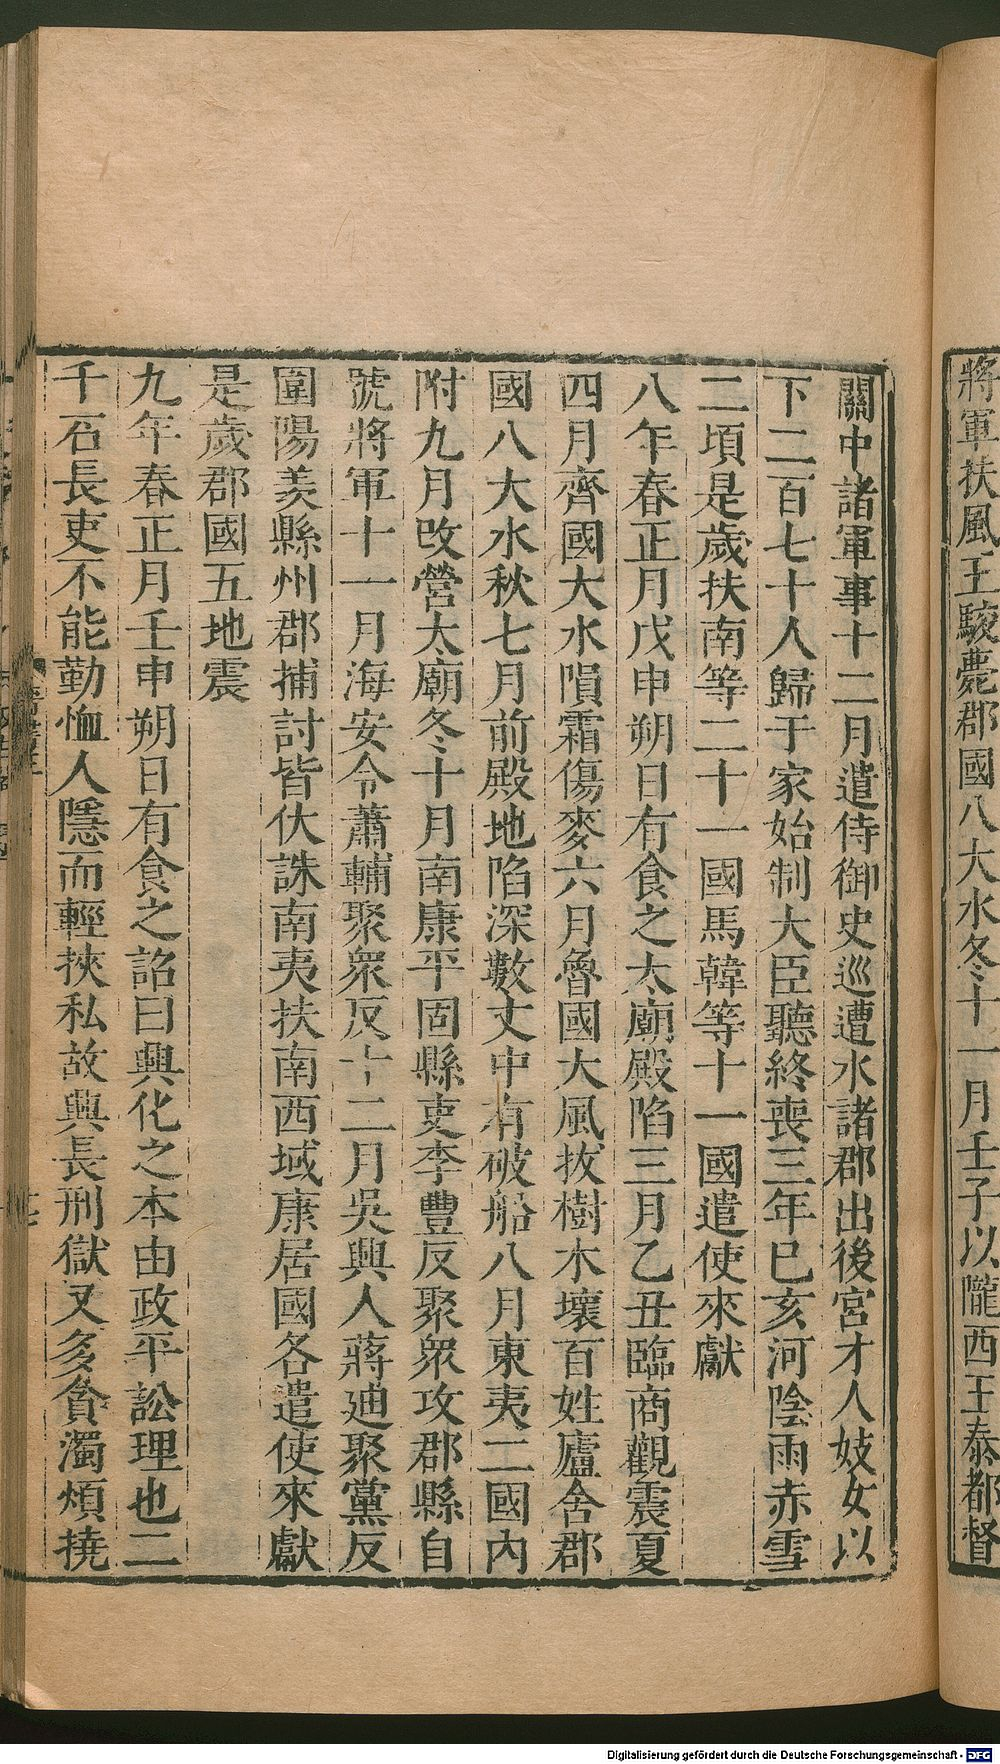 將軍扶風王駿薨郡國八大水冬十一月壬子以隴西王泰都督
關中諸軍事十二月遣侍御史巡遭水諸郡出後宮才人妓女以
下二百七十人歸于家始制大臣聽終喪三年已亥河陰雨赤雪
二頃是歲扶南等二十一國馬韓等十一國遣使來獻
八年春正月戊申朔日有食之太廟殿陷三月乙丑臨商觀震夏
四月齊國大水隕霜傷麥六月魯國大風拔樹木壞百姓廬舍郡
國八大水秋七月前殿地陷深數丈中有破船八月東夷二國內
附九月改營太廟冬十月南康平固縣吏李豐反聚眾攻郡縣自
號將軍十一月海安令蕭輔聚眾反十二月吳興人蔣迪聚黨反
圍陽羨縣州郡捕討皆伏誅南夷扶南西域康居國各遣使來獻
是歲郡國五地震
九年春正月壬申朔日有食之詔曰興化之本由政平訟理也二
千石長吏不能勤恤人隱而輕挾私故興長刑獄又多貪濁煩撓
Digitalisierung gefördert durch die Deutsche Forschungsgemeinschaft - DFG